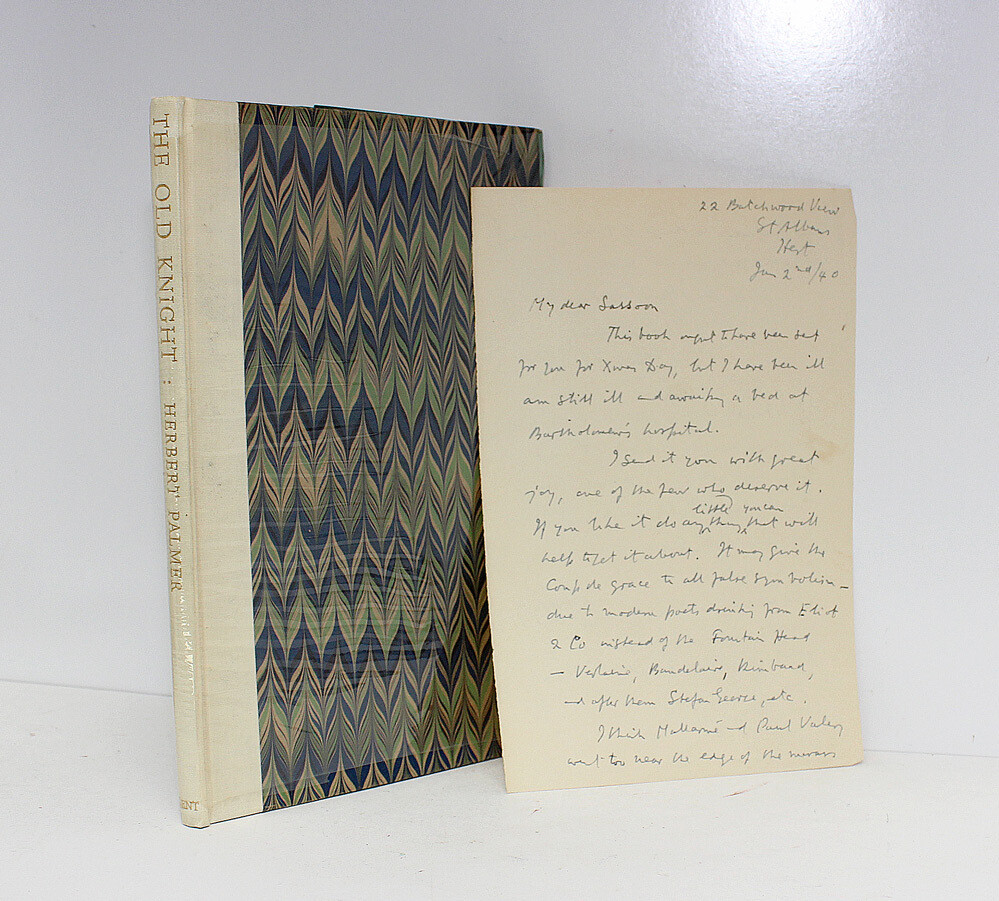 THE OLD KNIGHT : HERBERT PALMER
DENT
22 Batchwood View
St Albans
Hert
Jan 2nd/40
My dear Sassoon
This book ought to have been sent
for you for Xmas Day, but I have been ill
am still ill and awaiting a bed at
Bartholomew's hospital.
I send it you with great
joy, one of the few who deserve it.
little you can
If you like it do anything that will
help to get it about. It may give the
Coup de grace to all false symbolism —
due to modern poets drinking from Eliot
& Co instead of the Fountain Head
— Verlaine, Baudelaire, Rimbaud,
and after them Stefan George, etc.
I think Mallarmé and Paul Valery
went too near the edge of the